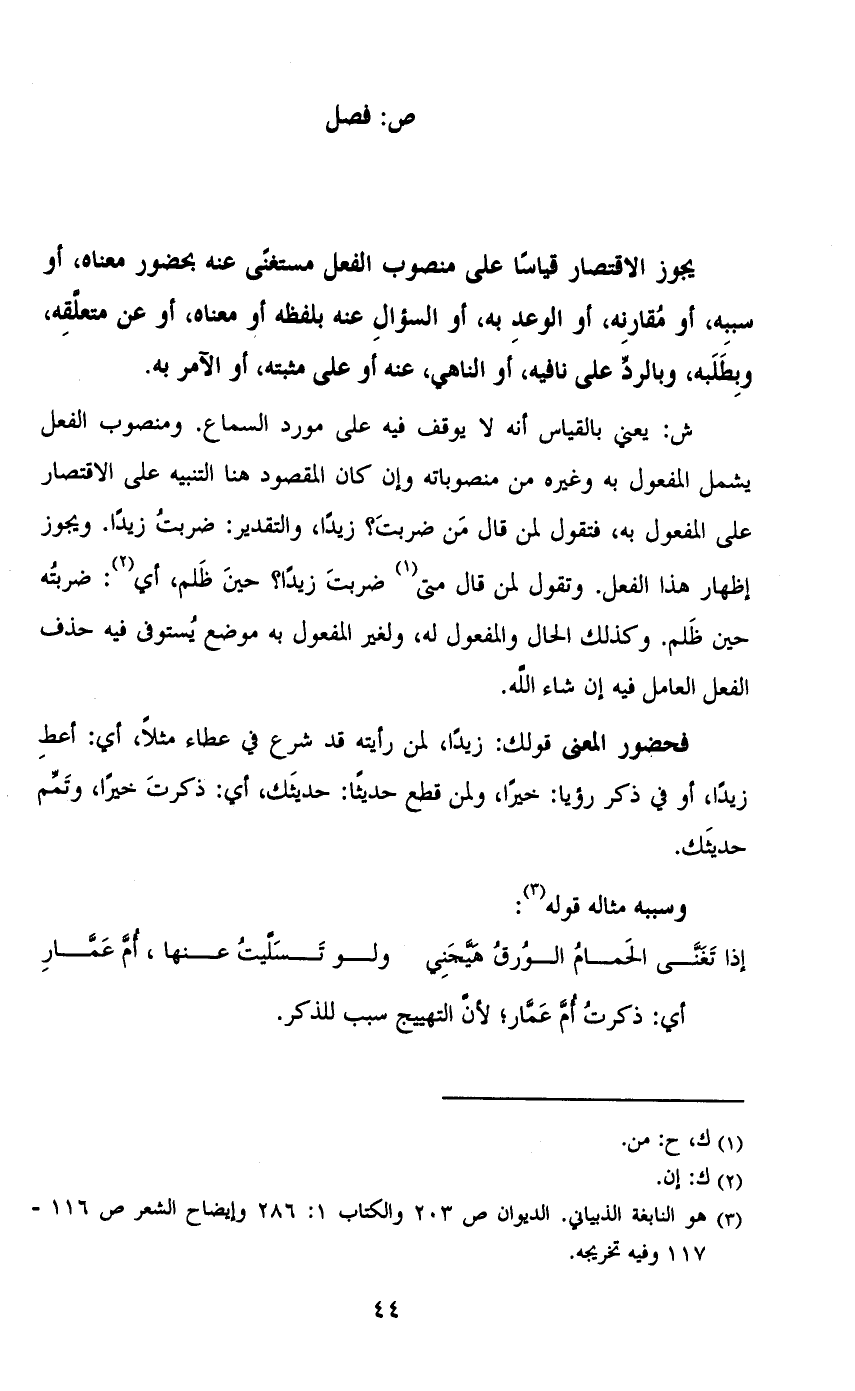 ص: فصل
يجوز الاقتصار قياسًا على منصوب الفعل مستغنًى عنه بحضور معناه، أو
سببِه، أو مُقارنِه، أو الوعدِ به، أو السؤالِ عنه بلفظه أو معناه، أو عن متعلَّقِه،
وبِطَلَبه، وبالردِّ على نافيه، أو الناهي، عنه أو على مثبته، أو الآمر به.
ش: يعني بالقياس أنه لا يوقف فيه على مورد السماع. ومنصوب الفعل
يشمل المفعول به وغيره من منصوباته وإن كان المقصود هنا التنبيه على الاقتصار
على المفعول به، فتقول لمن قال مَن ضربتَ؟ زيدًا، والتقدير: ضربتُ زيدًا. ويجوز
إظهار هذا الفعل. وتقول لمن قال متى(١) ضربتَ زيدًا؟ حينَ ظَلم، أي(٢): ضربتُه
حين ظَلم. وكذلك الحال والمفعول له، ولغير المفعول به موضع يُستوفى فيه حذف
الفعل العامل فيه إن شاء اللَّه.
فحضور المعنى قولك: زيدًا، لمن رأيته قد شرع في عطاء مثلاً، أي: أعطِ
زيدًا، أو في ذكر رؤيا: خيرًا، ولمن قطع حديثًا: حديثَك، أي: ذكرتَ خيرًا، وتَمِّم
حديثَك.
وسببه مثاله قوله(٣):
إذا تَغَنَّـــى الحَمـــامُ الـــوُرقُ هَيَّجَنِي ولـــو تَـــسَلَّيتُ عـــنها ، أُمَّ عَمَّـــارِ
أي: ذكرتُ أُمَّ عَمَّار؛ لأنَّ التهييج سبب للذكر.
(١) ك، ح: من.
(٢) ك: إن.
(٣) هو النابغة الذبياني. الديوان ص ٢٠٣ والكتاب ١: ٢٨٦ وإيضاح الشعر ص ١١٦ -
١١٧ وفيه تخريجه.
٤٤